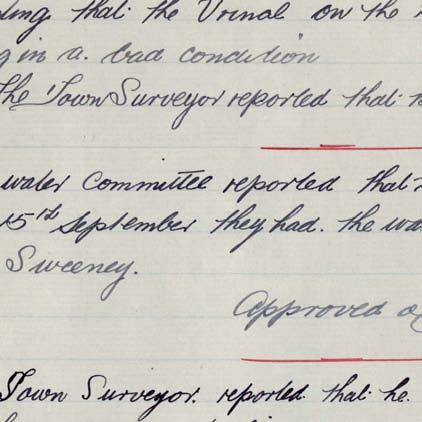 that the Urinal on the
in a bad condition
The Town Surveyor reported that
water Committee reported that
15th September they had. the
Sweeney.
Approved
Town Surveyor. reported that he.